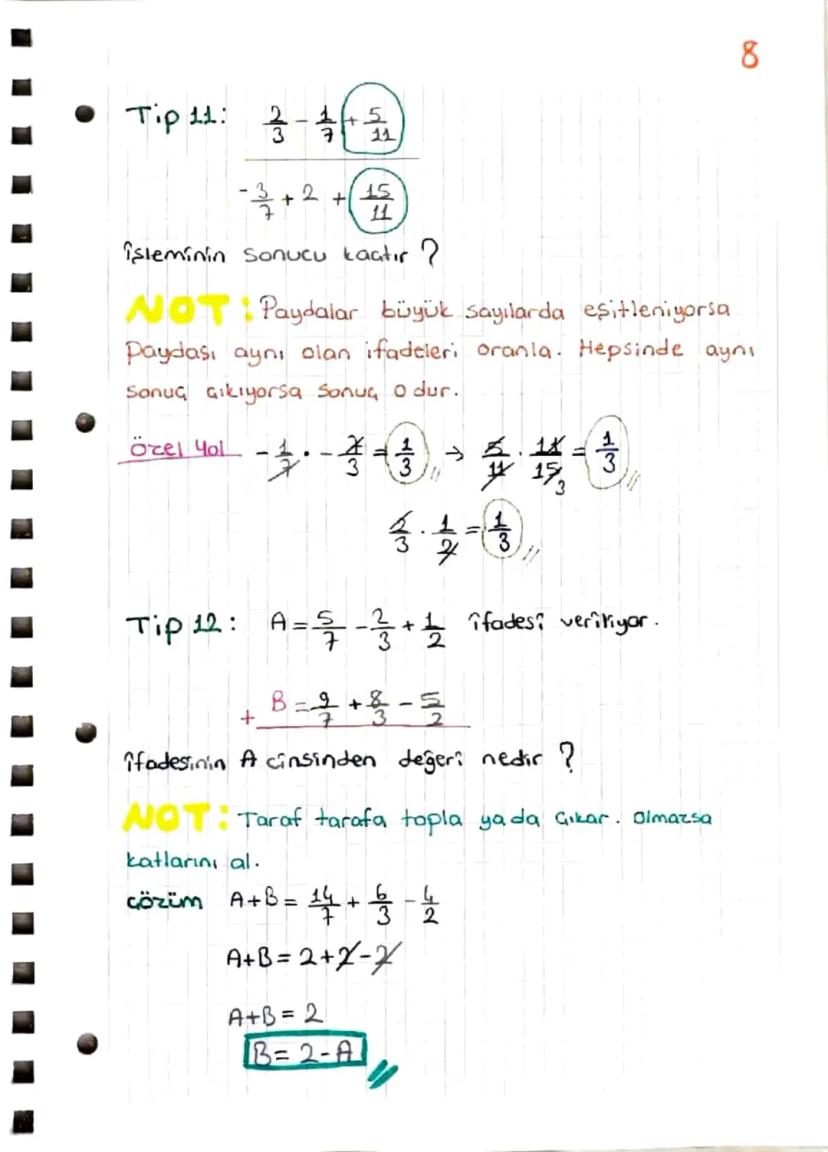 8
Tip 11: 2/3 - 1/7 + 5/11
-3/7 + 2 + 15/11
işleminin sonucu kaçtır?
NOT: Paydalar büyük sayılarda eşitleniyorsa
paydası aynı olan ifadeleri oranla. Hepsinde aynı
sonuç çıkıyorsa sonuç odur.
Özel Yol -1/7 · -7/3 = 1/3 → 5/11 · 11/15 3 = 1/3
2/3 · 1/2 = 1/3
Tip 12: A = 5/7 - 2/3 + 1/2 ifadesi veriliyor.
+ B = 9/7 + 8/3 - 5/2
ifadesinin A cinsinden değeri nedir?
NOT: Taraf tarafa topla yada çıkar. Olmazsa
katlarını al.
çözüm A+B = 14/7 + 6/3 - 4/2
A+B = 2+2-2
A+B = 2
B = 2-A